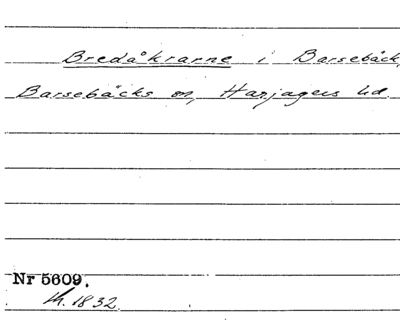 Bredåkrarne i Barsebäck,
Barsebäcks sn, Harjagers hd.
Nr 5609.
th. 1832